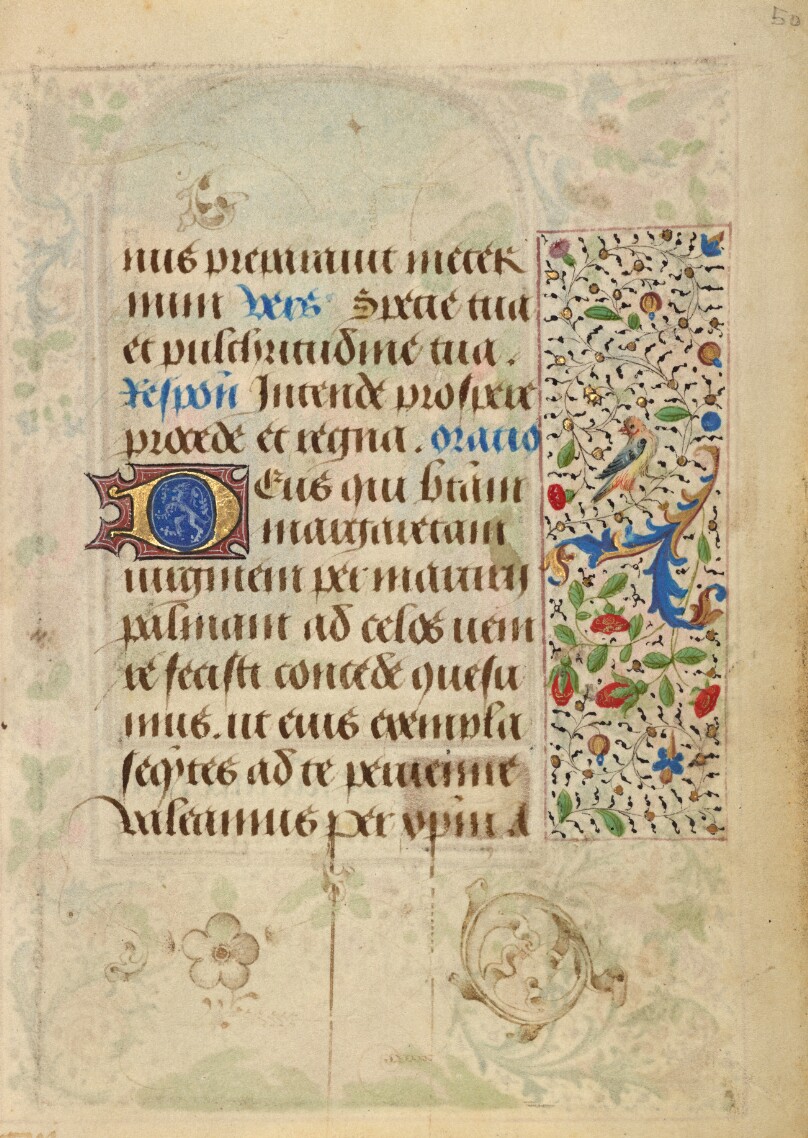 50
nus preparauit in eter
num Vers Specie tua
et pulchritudine tua.
Respon Intende prospere
procede et regna. oratio
Deus qui btam
margaretam
uirginem per martirij
palmam ad celos ueni
re fecisti concede quesu
mus. ut eius exempla
seqtes ad te peruenire
valeamus per xpm d